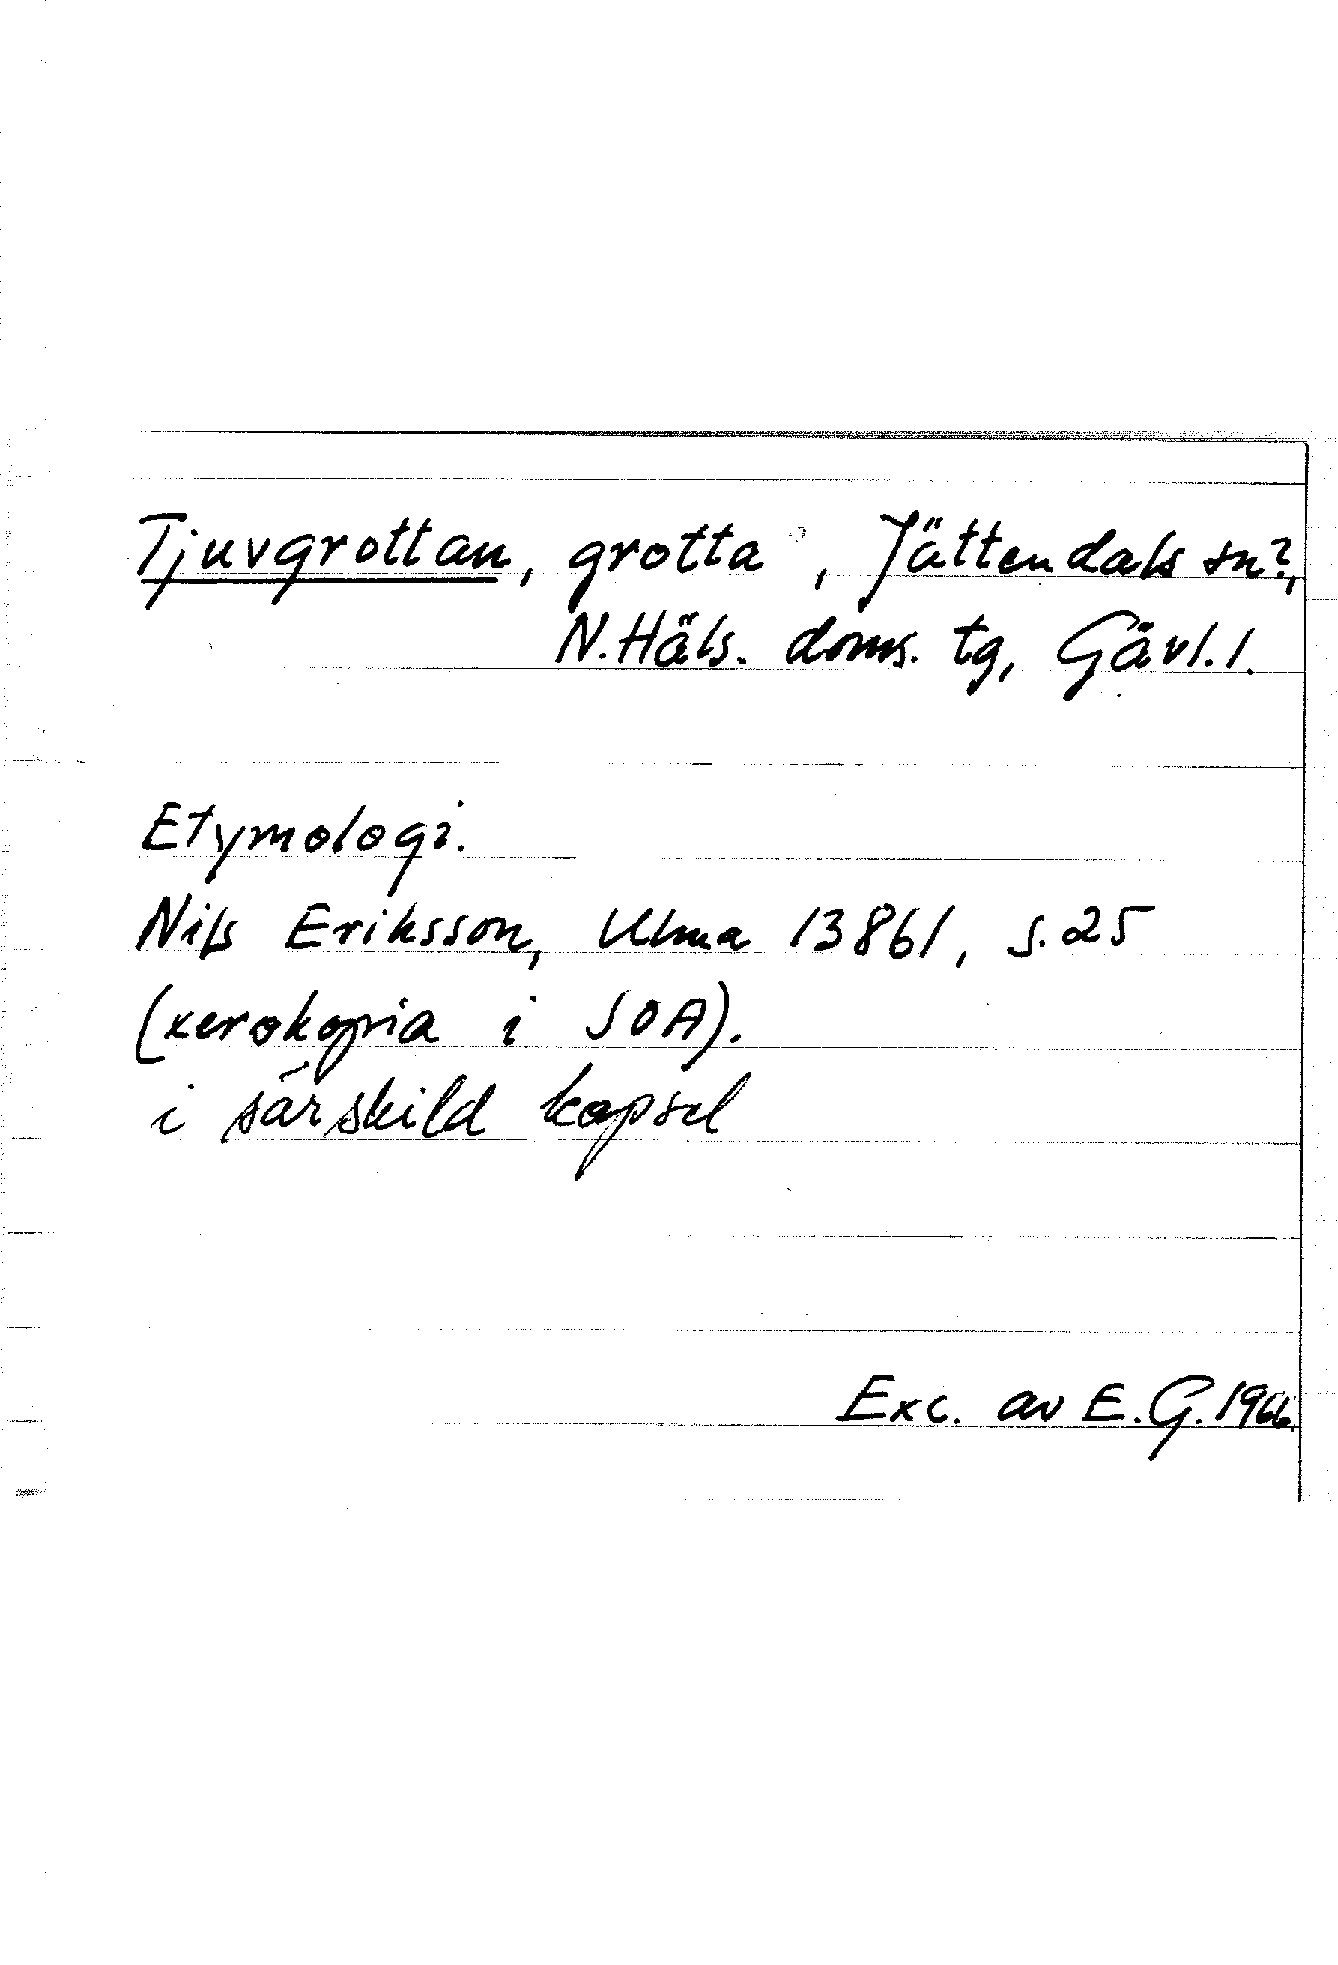 Tjuvgrottan, grotta, Jättendals sn?,
N. Häls. doms. tg, Gävl. l.
Etymologi.
Nils Eriksson, Ulma 13861, s. 25
(xerokopia i SOA).
i särskild kapsel
Exc. av E. G. 1966.